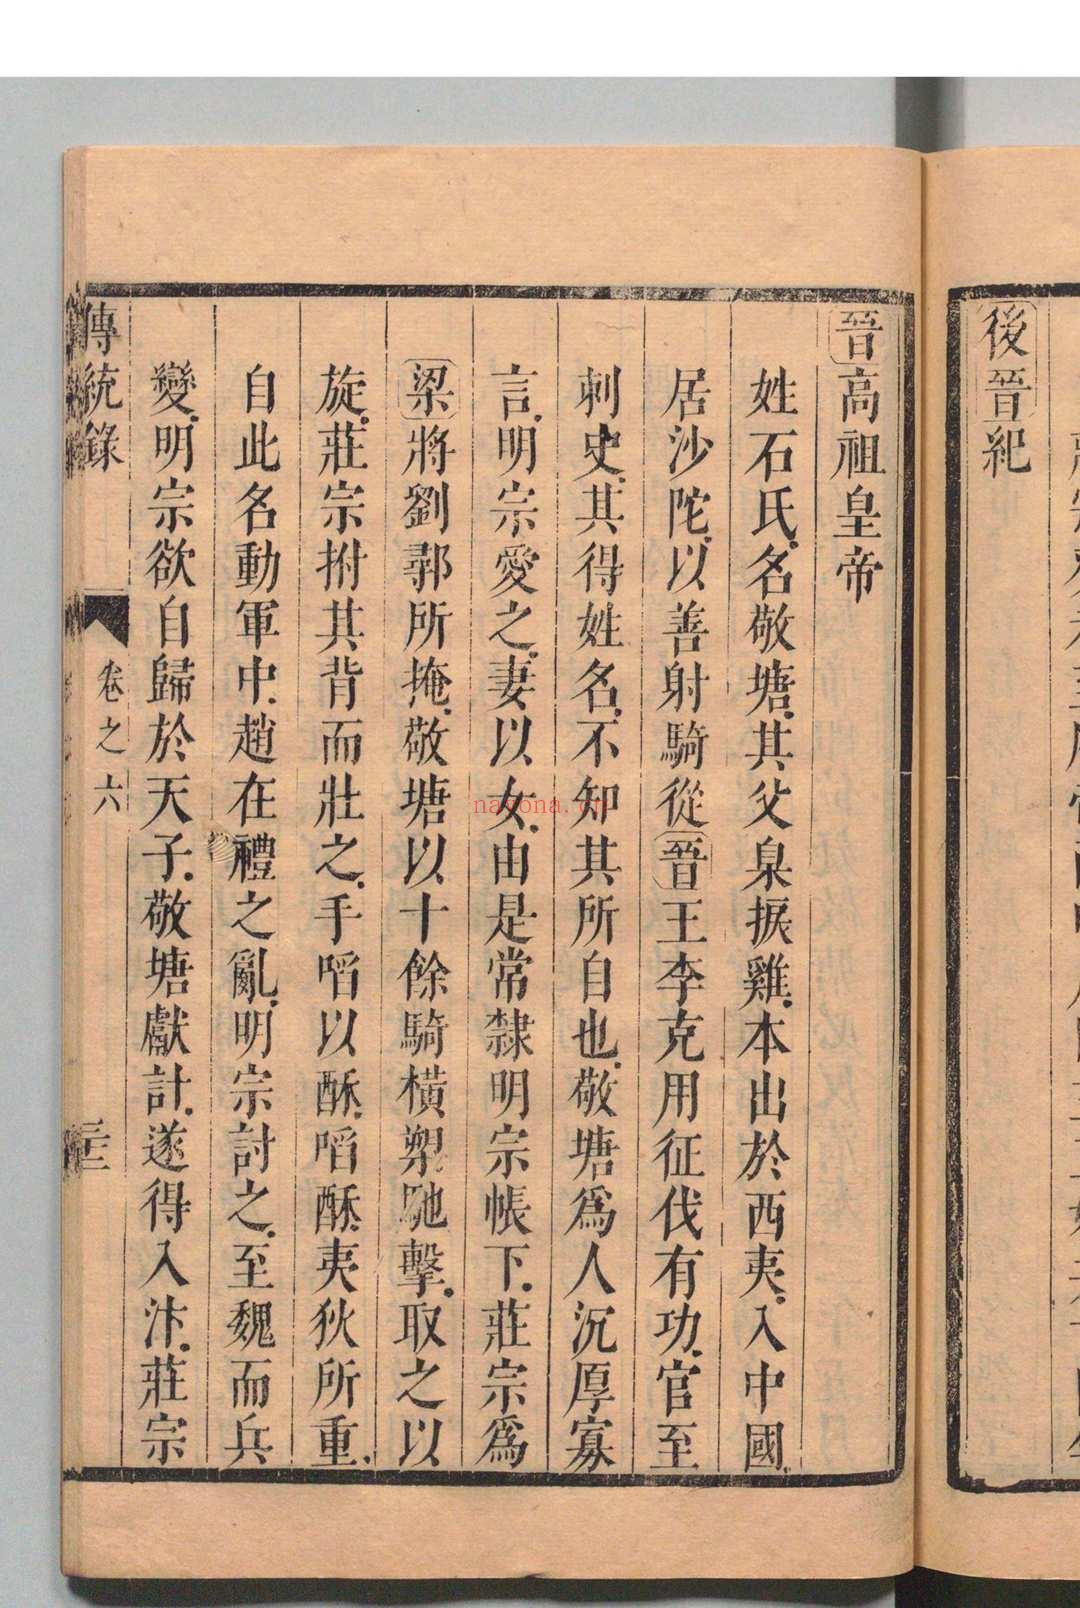 後晉紀
晉高祖皇帝
姓石氏名敬塘其父臬捩雞本出於西夷入中國
居沙陀以善射騎從晉王李克用征伐有功官至
刺史其得姓名不知其所自也敬塘爲人沉厚寡
言明宗愛之妻以女由是常隸明宗帳下莊宗爲
梁將劉鄩所掩敬塘以十餘騎橫槊馳擊取之以
旋莊宗拊其背而壯之手啗以酥啗酥夷狄所重
自此名動軍中趙在禮之亂明宗討之至魏而兵
變明宗欲自歸於天子敬塘獻計遂得入汴莊宗
傳統錄
卷之六